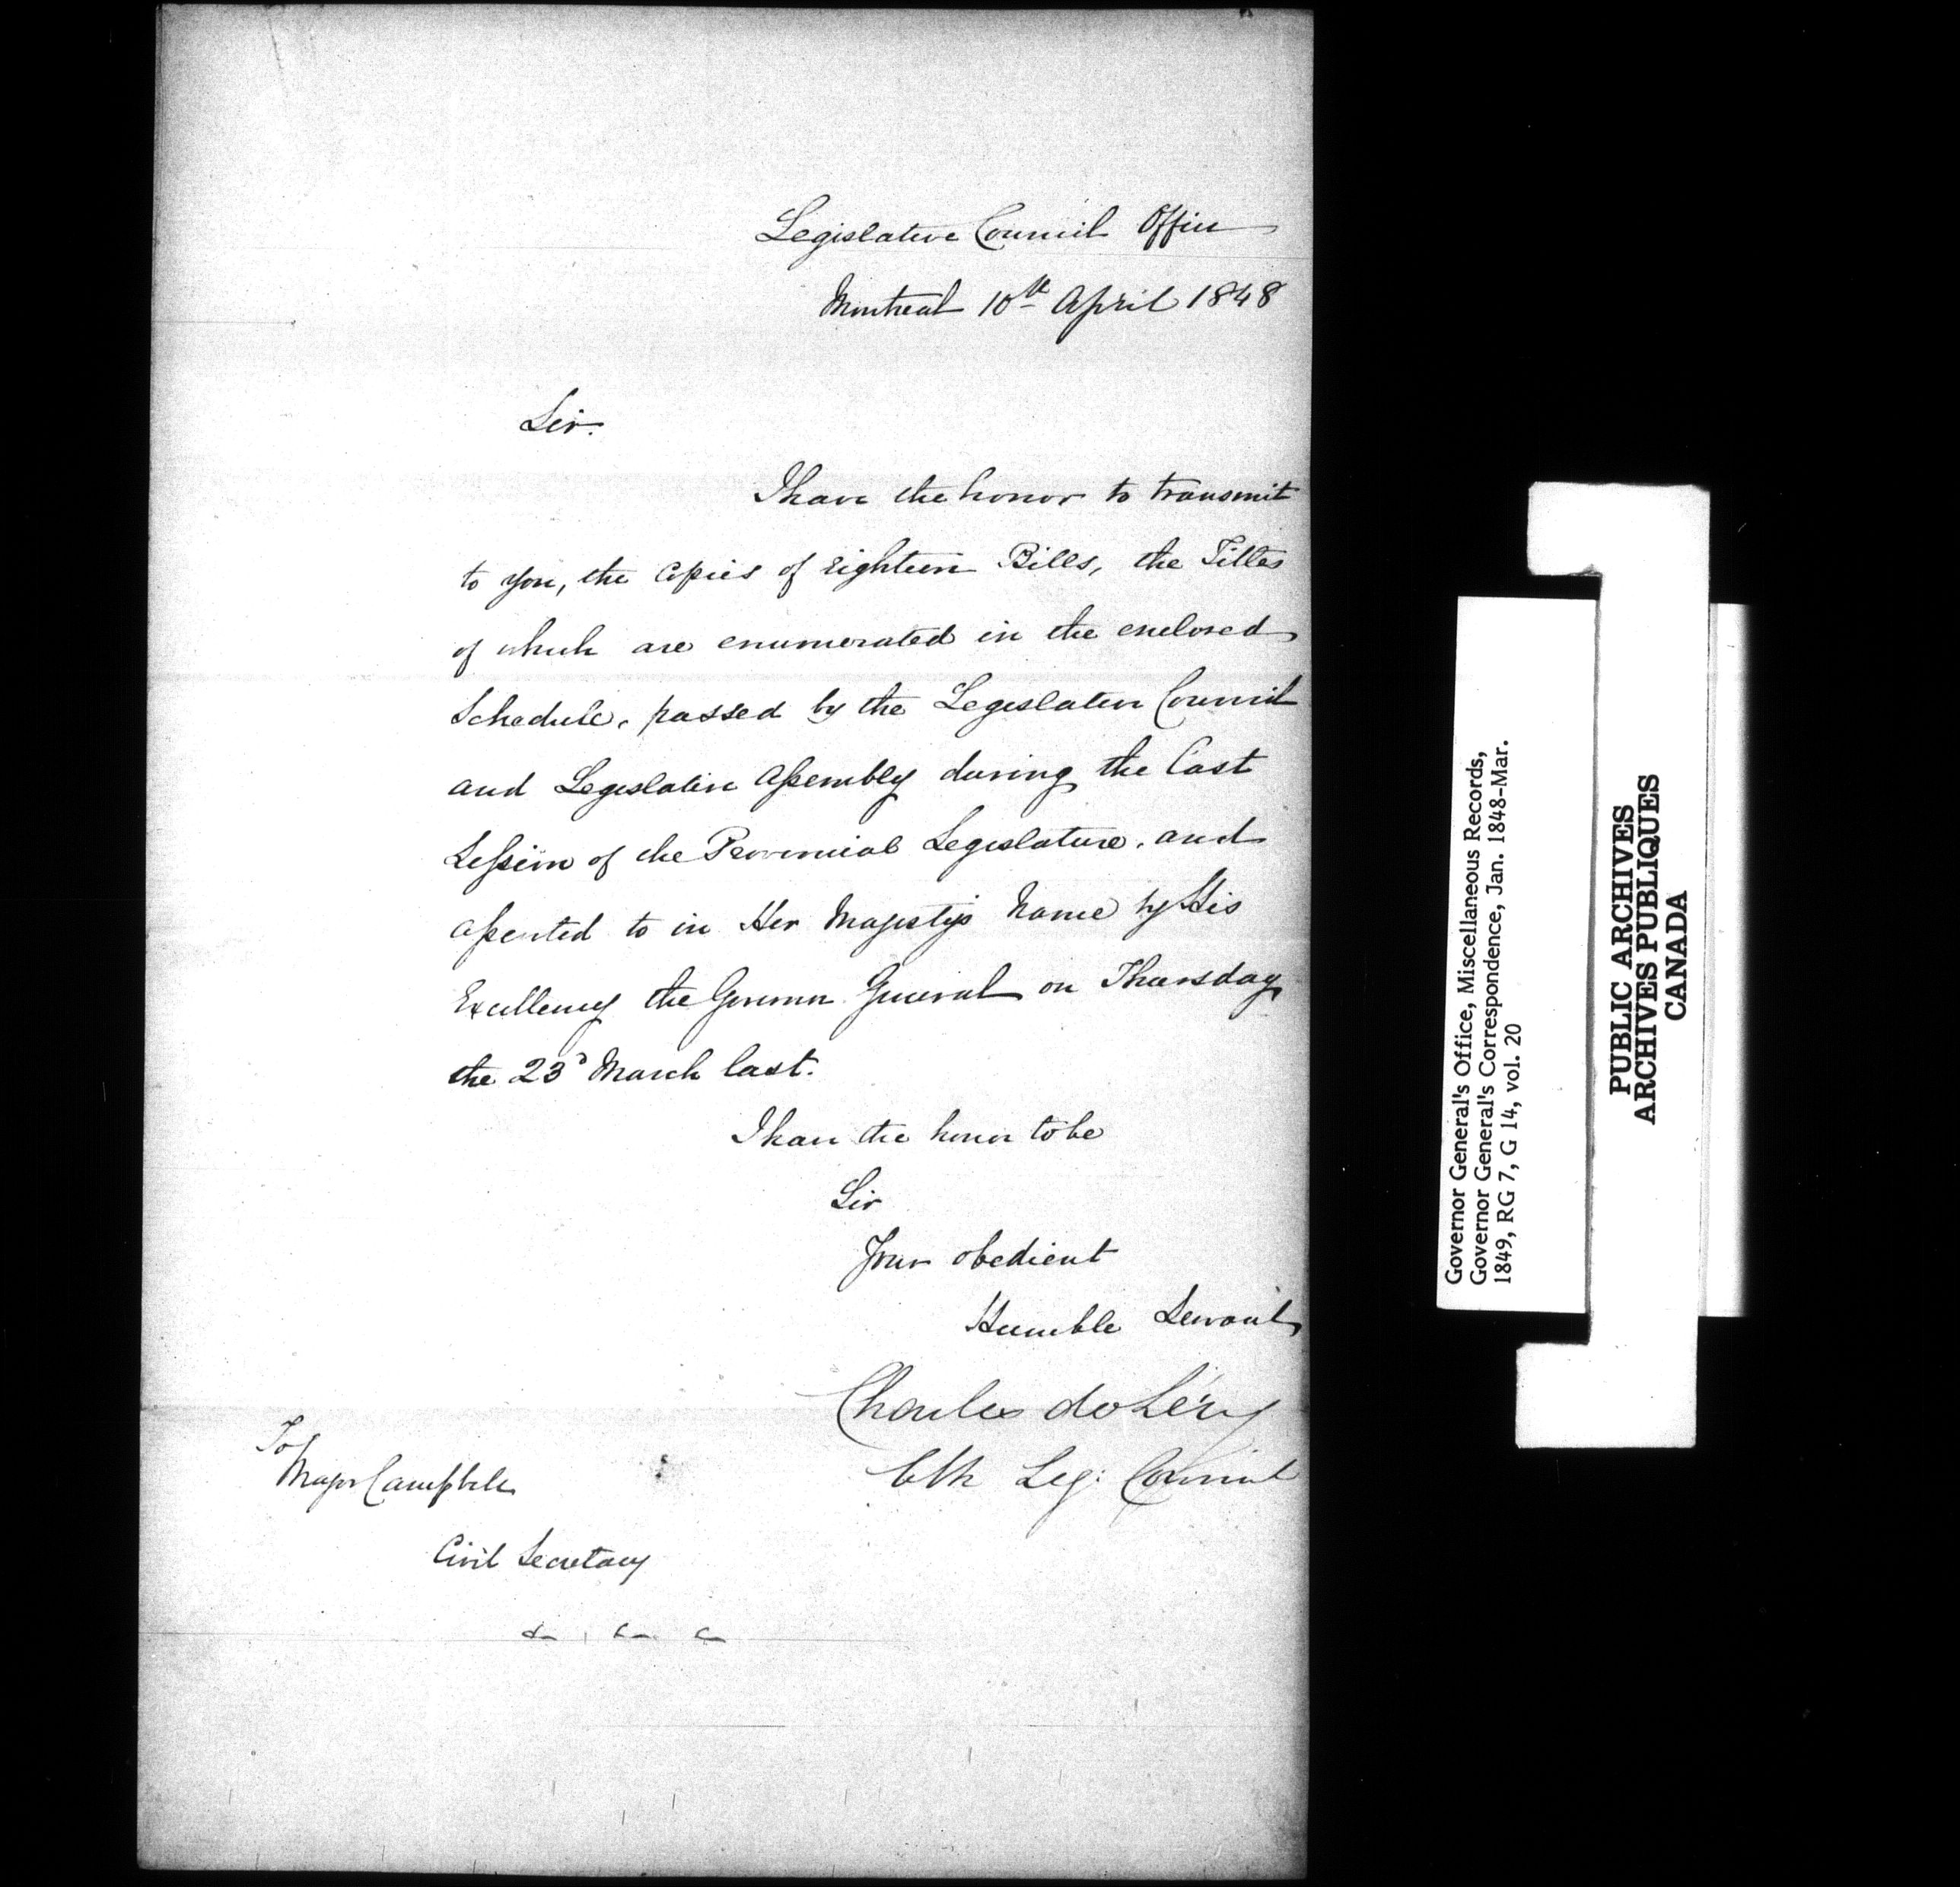 Legislative Council Office
Montreal 10th April 1848
Sir.
I have the honor to transmit
to you, the Copies of Eighteen Bills, the Titles
of which are enumerated in the enclosed
Schedule, passed by the Legislative Council
and Legislative Assembly during the Last
Session of the Provincial Legislature, and
assented to in Her Majesty's Name by His
Excellency the Governor General on Thursday
the 23d March last.
I have the honor to be
Sir
Your obedient
Humble Servant
Charles de Léry
Clk Leg: Council
To
Major Campbell
Civil Secretary
&c &c &c
Governor General's Office, Miscellaneous Records,
Governor General's Correspondence, Jan. 1848-Mar.
1849, RG 7, G 14, vol. 20
PUBLIC ARCHIVES
ARCHIVES PUBLIQUES
CANADA